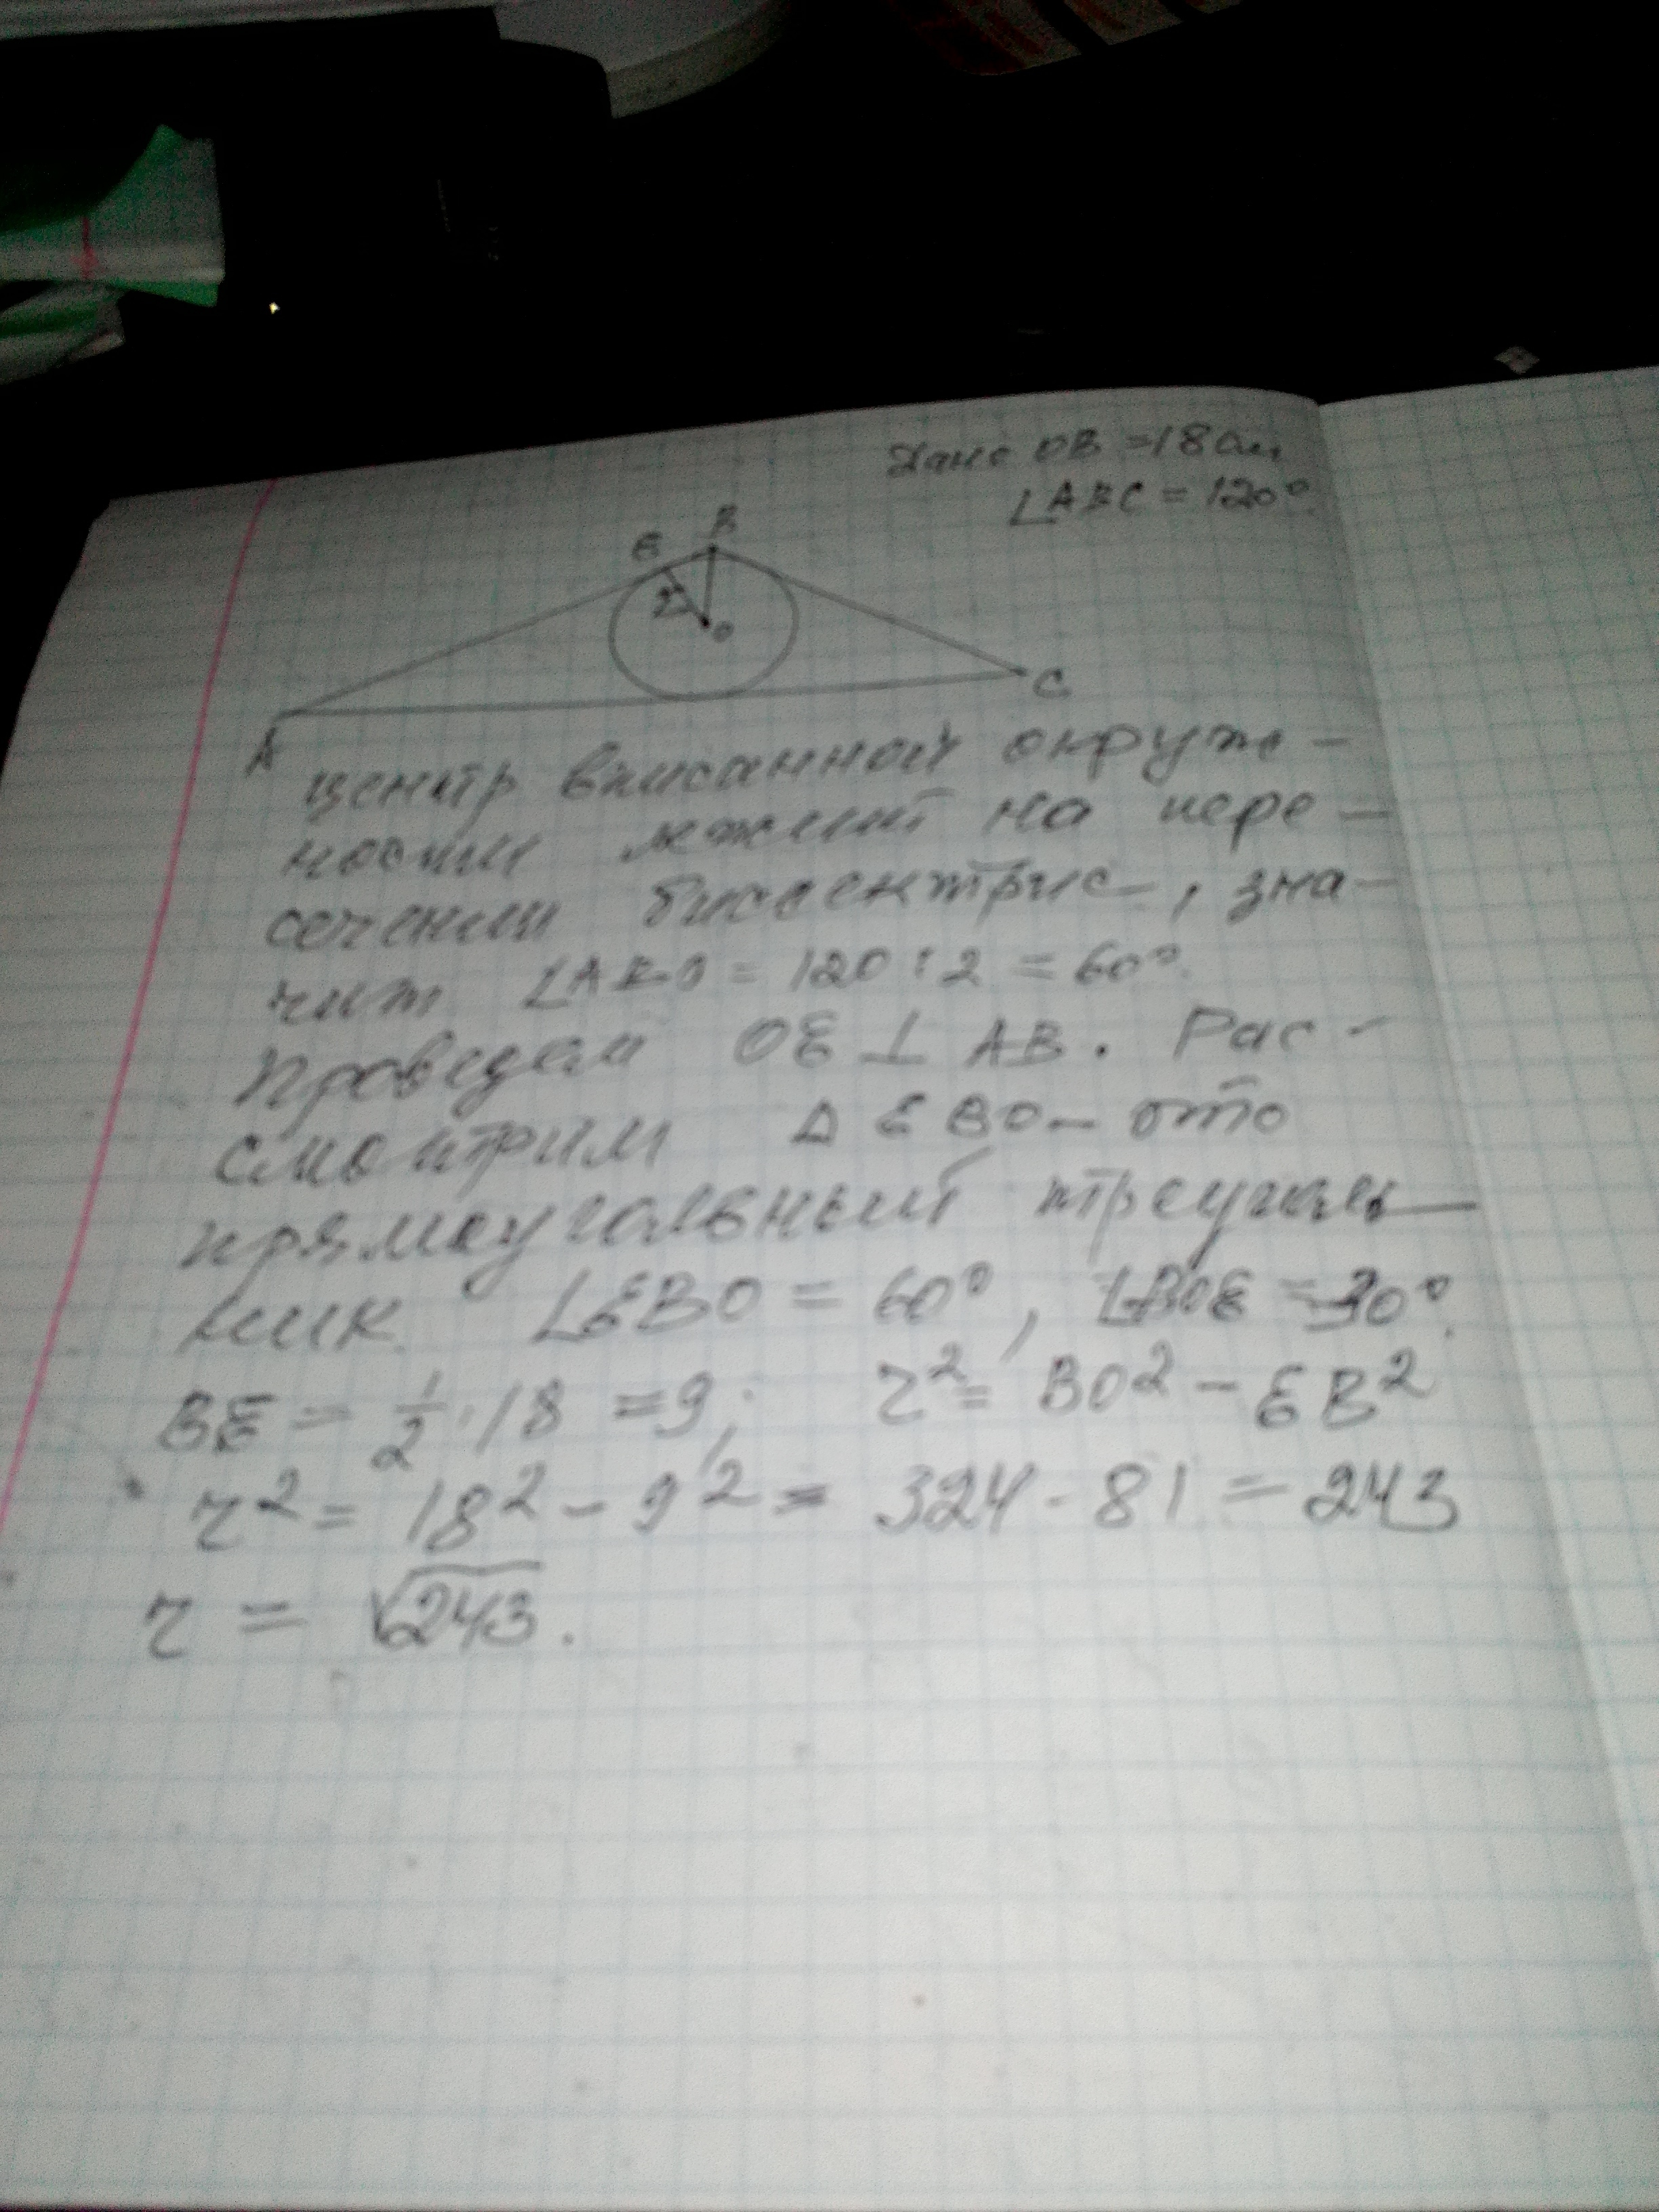 Дано OB = 18 см
∠ABC = 120°.
B
E
r
O
C
A
центр вписанной окруж-
ности лежит на пере-
сечении биссектрис, зна-
чит ∠ABO = 120 : 2 = 60°.
Проведем OE ⊥ AB. Рас-
смотрим Δ EBO – это
прямоугольный треуголь-
ник ∠EBO = 60°, ∠BOE = 30°.
BE = 1/2 · 18 = 9; r² = BO² - EB²
r² = 18² - 9² = 324 - 81 = 243
r = √243.